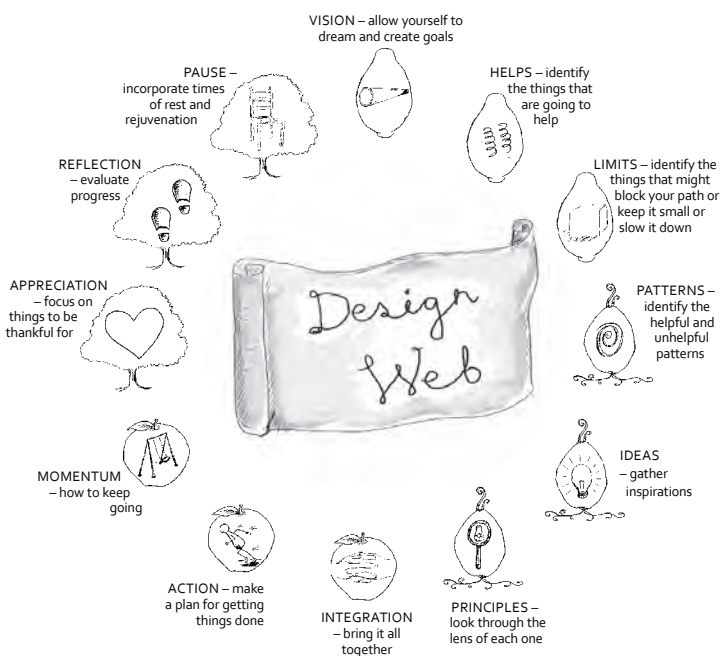 VISION – allow yourself to
dream and create goals
HELPS – identify
the things that
are going to
help
LIMITS – identify the
things that might
block your path or
keep it small or
slow it down
PATTERNS –
identify the
helpful and
unhelpful
patterns
IDEAS
– gather
inspirations
PRINCIPLES –
look through the
lens of each one
INTEGRATION
– bring it all
together
ACTION – make
a plan for getting
things done
MOMENTUM
– how to keep
going
APPRECIATION
– focus on
things to be
thankful for
REFLECTION
– evaluate
progress
PAUSE –
incorporate times
of rest and
rejuvenation
Design
Web